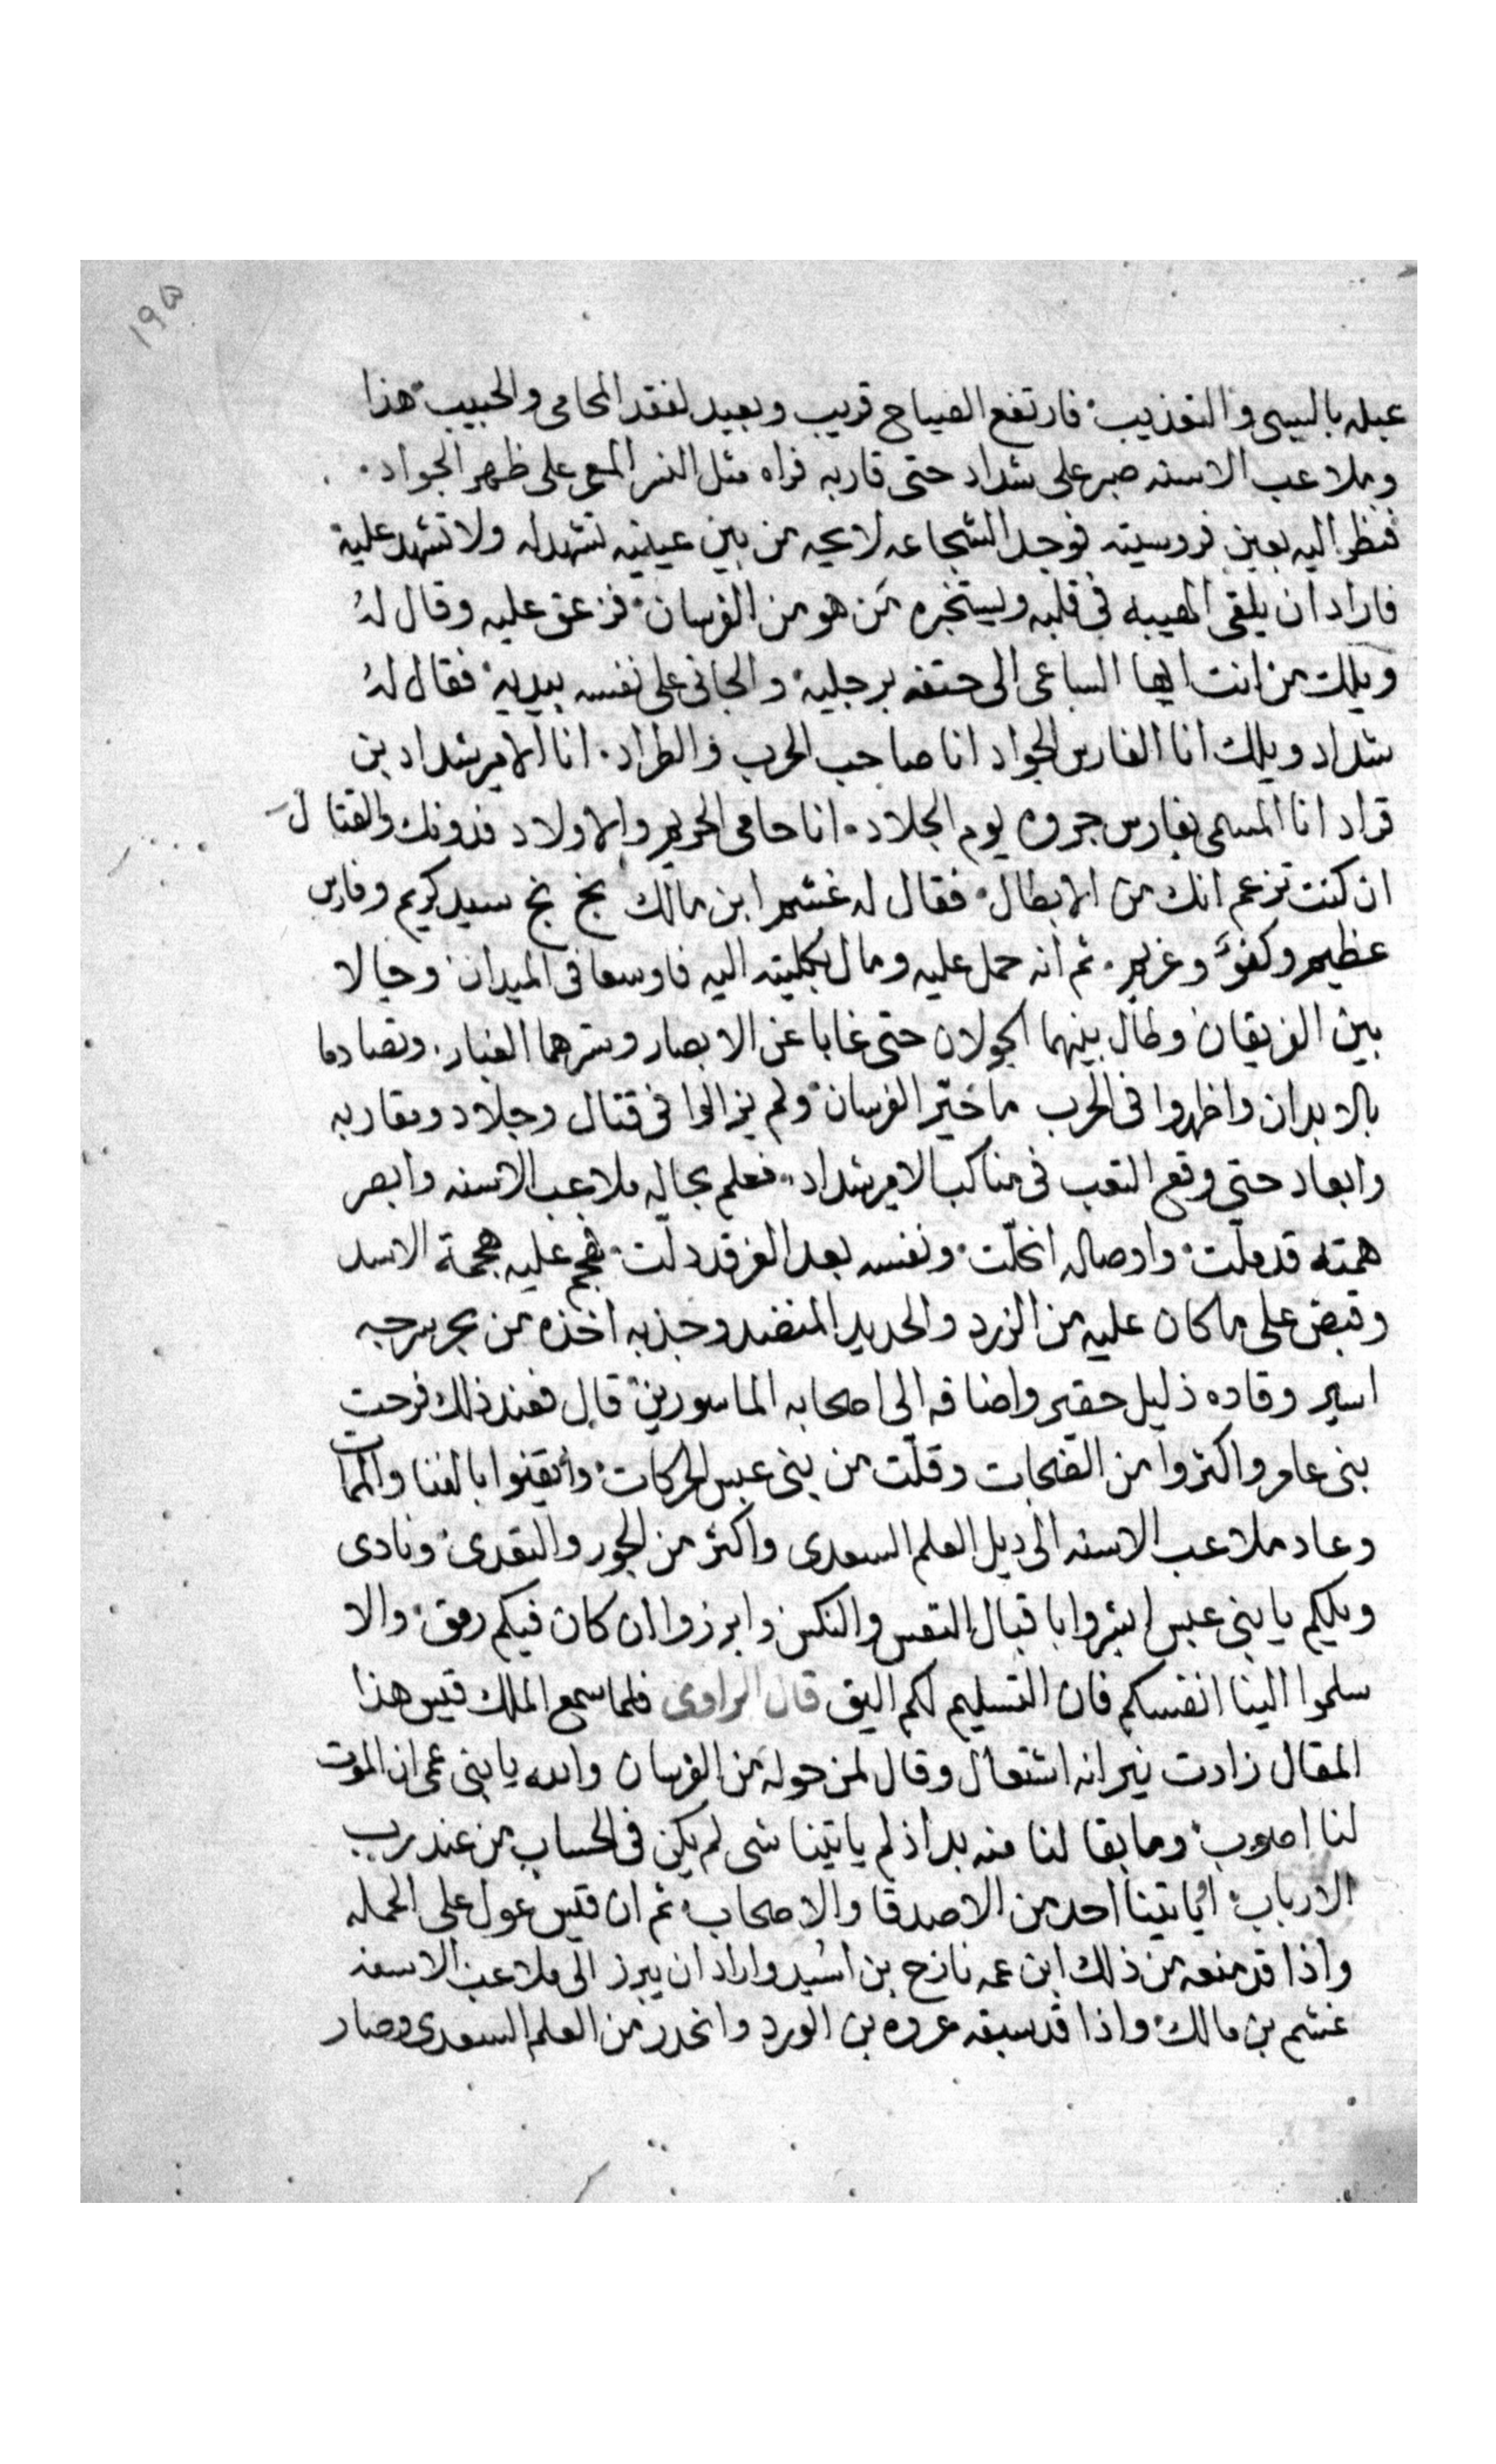 ١٩٥
عبله بالسبى والتعذيب فارتفع الصياح قريب وبعيد لفقد المحامى والحبيب هذا
وملاعب الاسنه صبر على شداد حتى قاربه فراه مثل النسر على ظهر الجواد
فنظر اليه بعين فروسيته فوجد الشجاعه لايحه من بين عينيه تشهد له ولا تشهد عليه
فاراد ان يلقى الهيبه فى قلبه ويستخبره من هو من الفرسان فزعق عليه وقال له
ويلك من انت ايها الساعى الى حتفه برجليه والجانى على نفسه بيديه فقال له
شداد ويلك انا الفارس الجواد انا صاحب الحرب والطراد انا الامير شداد بن
قراد انا المسمى بفارس جروه يوم الجلاد انا حامى الحريم والاولاد فدونك والقتال
ان كنت تزعم انك من الابطال فقال له غشم ابن مالك بخ بخ سيد كريم وفارس
عظيم وكفؤ وغريم ثم انه حمل عليه ومال بكليته اليه فاوسعا فى الميدان وجالا
بين الفريقان وطال بينهما الجولان حتى غابا عن الابصار وسترهما الغبار وتصادما
بالابدان واظهروا فى الحرب ما حيّر الفرسان ولم يزالوا فى قتال وجلاد ومقاربه
وابعاد حتى وقع التعب فى مناكب الامير شداد فعلم بحاله ملاعب الاسنه وابصر
همته قد ملّت واوصاله انحلّت ونفسه بعد الفر قد دلت فهجم عليه هجمة الاسد
وقبض على ما كان عليه من الزرد والحديد المنضد وجذبه اخذه من بحر سرجه
اسير وقاده ذليل حقير واضافه الى اصحابه الماسورين قال فعند ذلك فرحت
بنى عامر واكثروا من الضجات وقلّت من بنى عبس الحركات وايقنوا بالفنا والممات
وعاد ملاعب الاسنه الى ديل العلم السعدى واكثر من الجور والتعدى ونادى
ويلكم يا بنى عبس ابشروا باقبال التعس والنكس وابرزوا ان كان فيكم رمق والا
سلموا الينا انفسكم فان التسليم لكم اليق قال الراوى فلما سمع الملك قيس هذا
المقال زادت نيرانه اشتعال وقال لمن حوله من الفرسان والله يا بنى عمى ان الموت
لنا اصوب وما بقا لنا منه بد اذ لم ياتينا شى لم يكن فى الحساب من عند رب
الارباب ياتينا احد من الاصدقا والاصحاب ثم ان قيس عول على الحمله
واذا قد منعه من ذلك ابن عمه نازح بن اسيد واراد ان يبرز الى ملاعب الاسنه
غشم بن مالك واذا قد سبقه عروه بن الورد وانحدر من العلم السعدى وصار